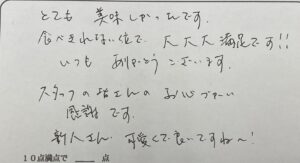 とても 美味しかったです.
食べきれない位で 大大大満足です!!
いつも ありがとう ございます.
スタッフの皆さんの お心づかい
感謝 です.
新人さん 可愛くて良いですね〜!
10点満点で 点